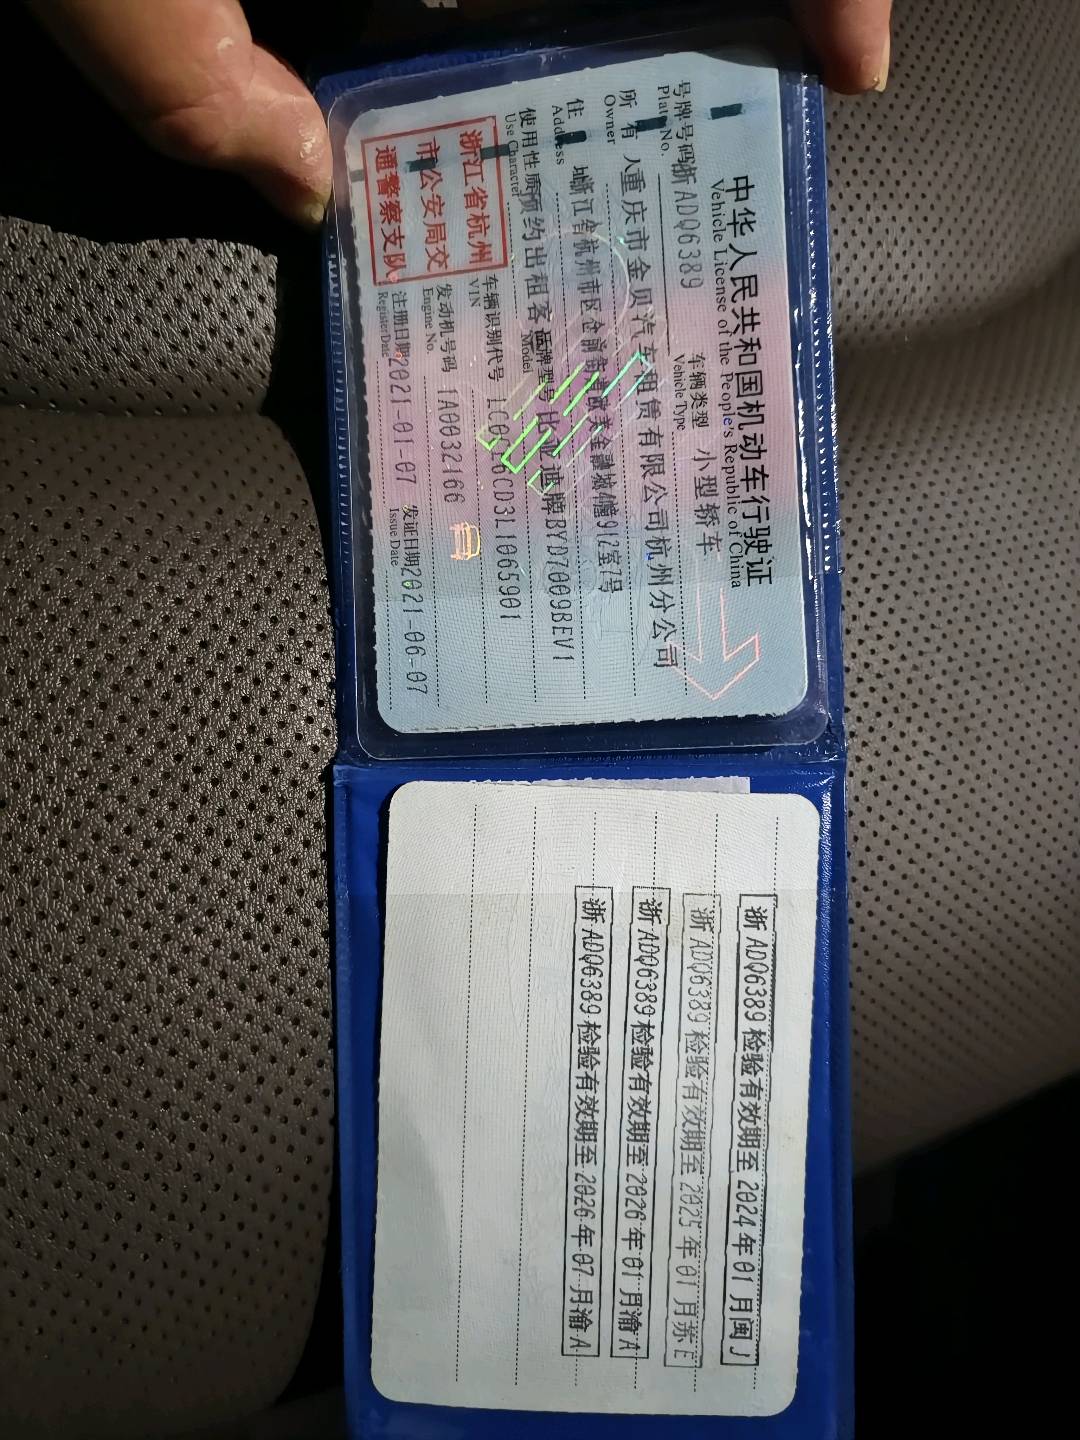 中华人民共和国机动车行驶证
Vehicle License of the People's Republic of China
号牌号码 浙ADQ6389 车辆类型 小型轿车
Plate No. Vehicle Type
所有人 重庆市金贝汽车租赁有限公司杭州分公司
Owner
住址 浙江省杭州市区仓前街道欧美金融城 912室7号
Address
使用性质 预约出租客运 品牌型号 比亚迪牌BYD7009BEV1
Use Character Model
浙江省杭州
市公安局交
通警察支队
车辆识别代号 6CD3L1065901
VIN
发动机号码 1A0032166
Engine No.
注册日期 2021-01-07 发证日期 2021-06-07
Register Date Issue Date
浙ADQ6389检验有效期至2024年01月闽J
浙ADQ6389检验有效期至2025年01月苏E
浙ADQ6389检验有效期至2026年01月渝A
浙ADQ6389检验有效期至2026年07月渝A